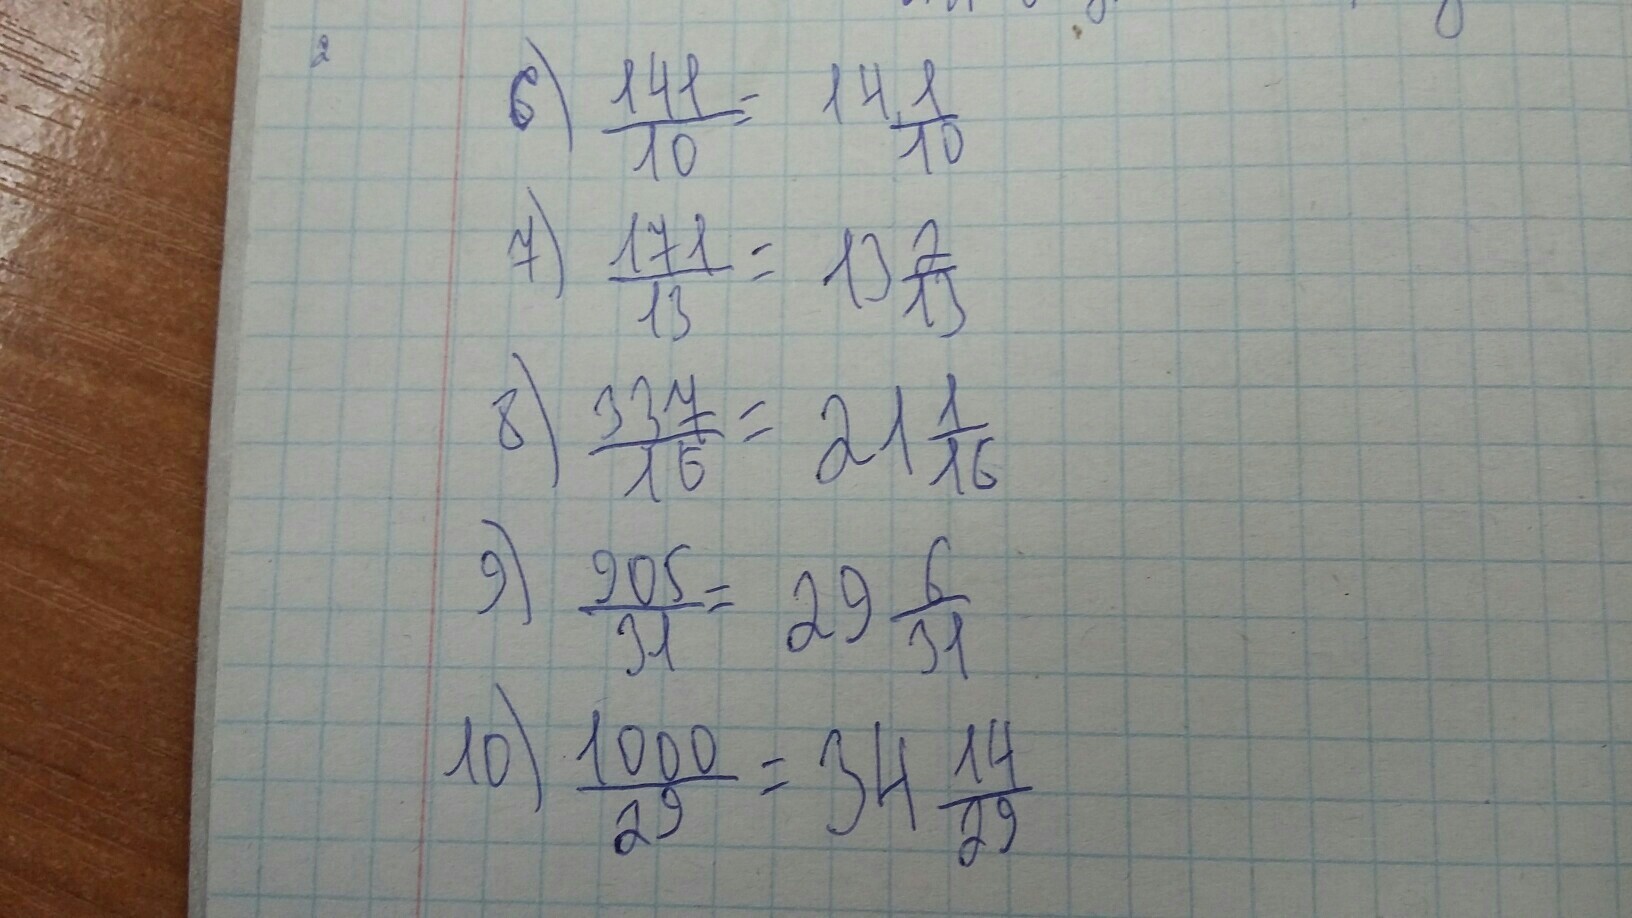 2
6) 141/10 = 14 1/10
7) 171/13 = 13 2/13
8) 337/16 = 21 1/16
9) 905/31 = 29 6/31
10) 1000/29 = 34 14/29